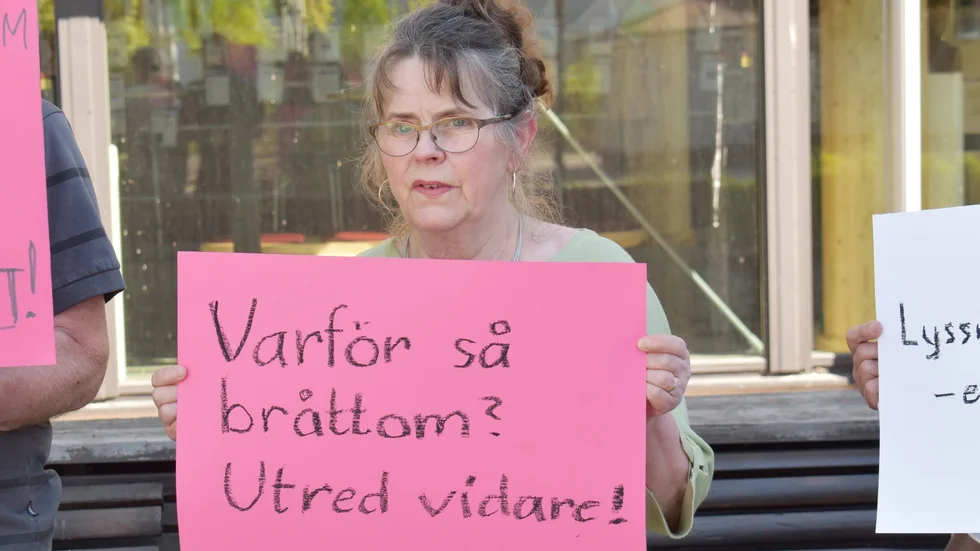 M
T!
Varför så
bråttom?
Utred vidare!